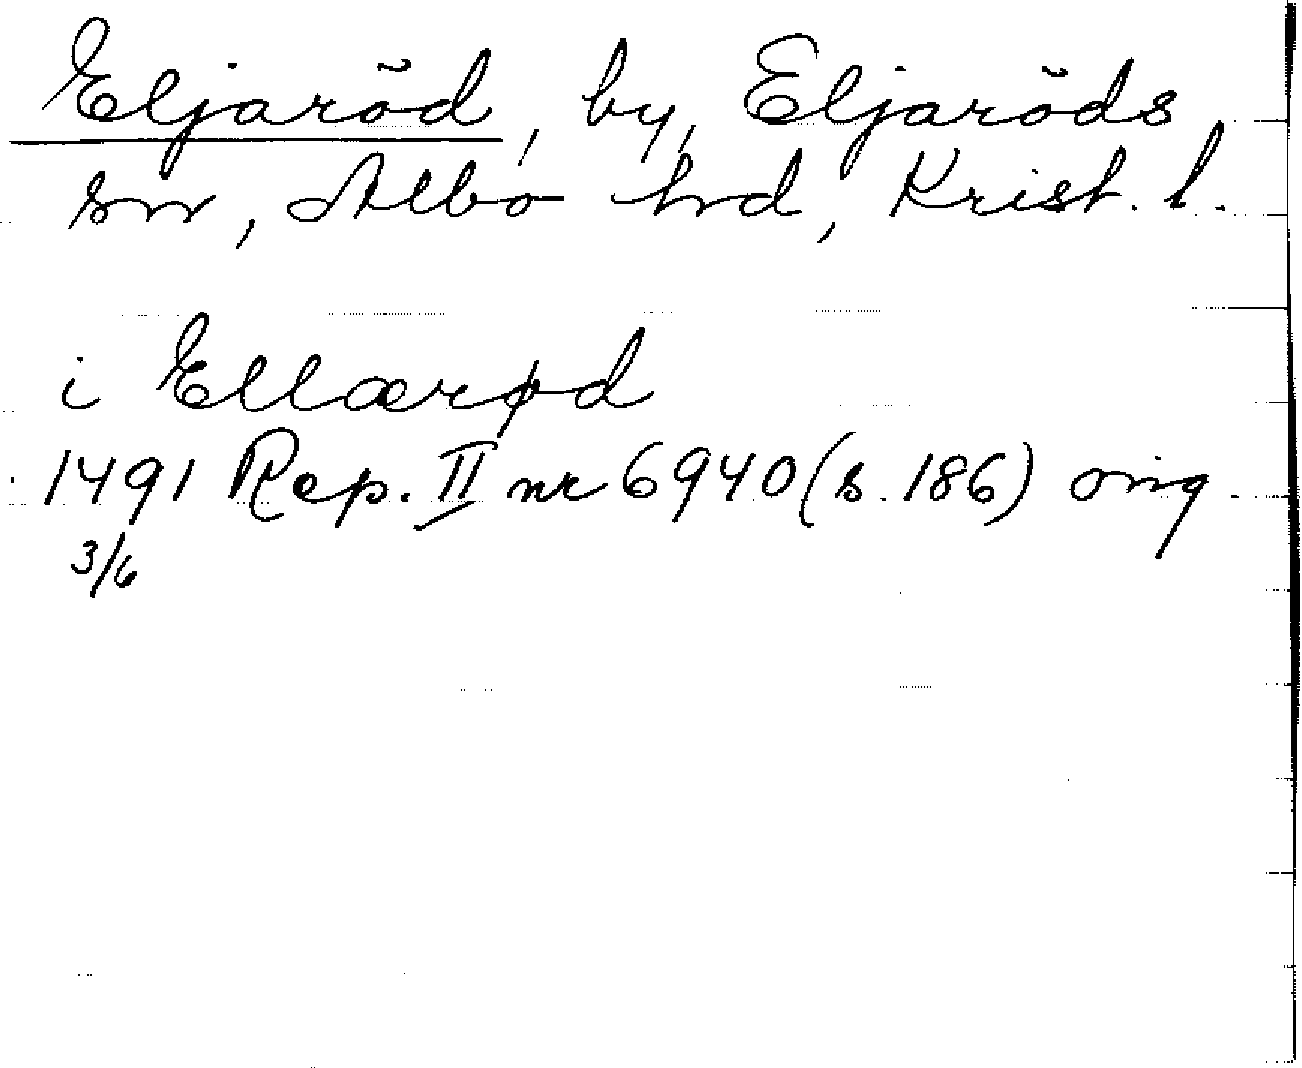 Eljaröd, by, Eljaröds
sn, Albo hd, Krist. l.
i Ellærød
1491 Rep. II nr 6940 (s. 186) orig
3/6